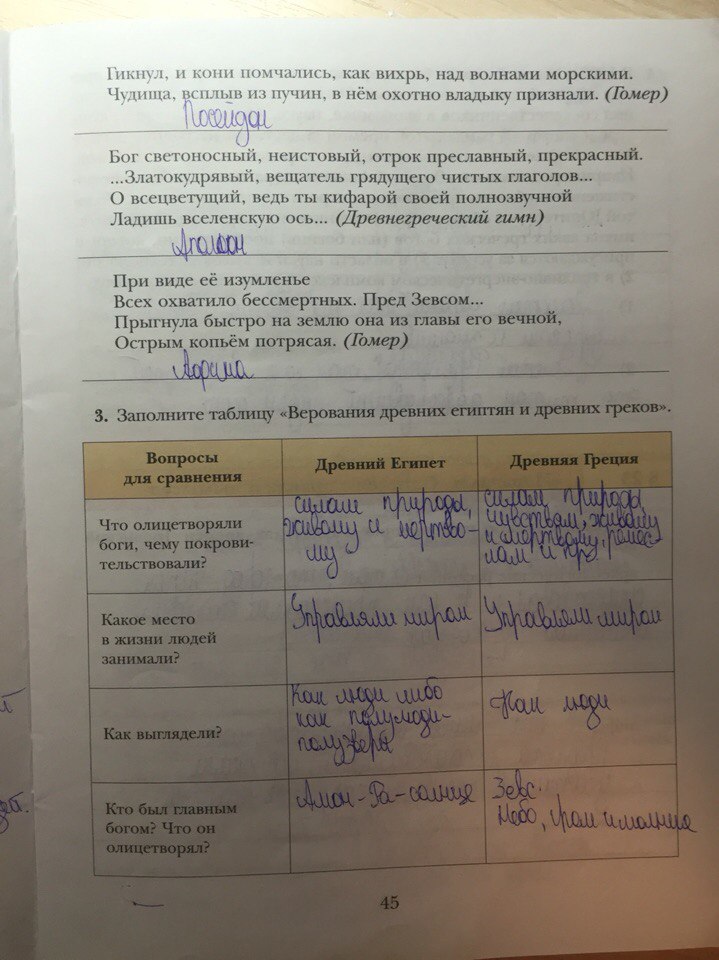 Гикнул, и кони помчались, как вихрь, над волнами морскими.
Чудища, всплыв из пучин, в нём охотно владыку признали. (Гомер)
Посейдон
Бог светоносный, неистовый, отрок преславный, прекрасный.
...Златокудрявый, вещатель грядущего чистых глаголов...
О всецветущий, ведь ты кифарой своей полнозвучной
Ладишь вселенскую ось... (Древнегреческий гимн)
При виде её изумленье
Всех охватило бессмертных. Пред Зевсом...
Прыгнула быстро на землю она из главы его вечной,
Острым копьём потрясая. (Гомер)
Афина
3. Заполните таблицу «Верования древних египтян и древних греков».
Вопросы
для сравнения
Древний Египет
Древняя Греция
Что олицетворяли
боги, чему покрови-
тельствовали?
силам природы,
живому и мертво-
му
силам природы
чувствам, живому
и мёртвому, ремес-
лам и пр.
Какое место
в жизни людей
занимали?
Управляли миром
Управляли миром
Как выглядели?
Как люди либо
как полулюди-
полузвери
Как люди
Кто был главным
богом? Что он
олицетворял?
Амон-Ра-солнце
Зевс.
Небо, гром и молния
45